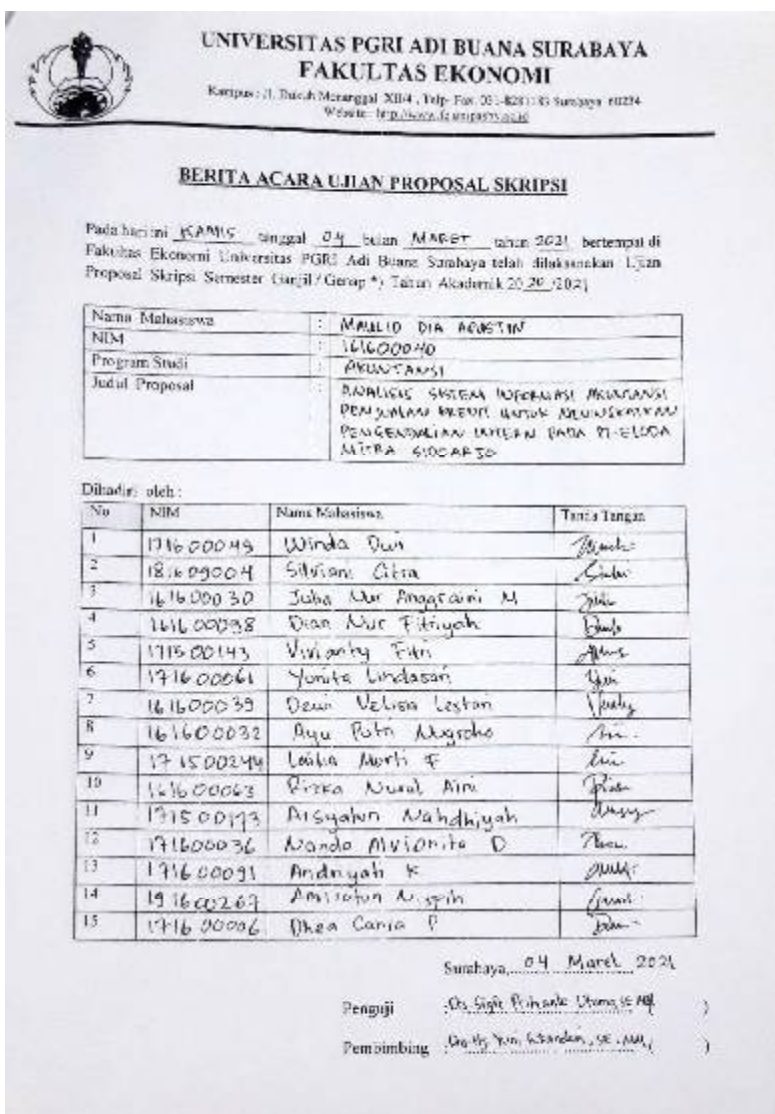 UNIVERSITAS PGRI ADI BUANA SURABAYA
FAKULTAS EKONOMI
Kampus : Jl. Dukuh Menanggal XII/4, Telp- Fax. 031-8281183 Surabaya 60234
Website :
BERITA ACARA UJIAN PROPOSAL SKRIPSI
Pada hari ini KAMIS tanggal 04 bulan MARET tahun 2021 bertempat di
Fakultas Ekonomi Universitas PGRI Adi Buana Surabaya telah dilaksanakan Ujian
Proposal Skripsi Semester Ganjil / Genap *) Tahun Akademik 20 20 /2021
Nama Mahasiswa : MAULID DIA AGUSTIN
NIM : 161600040
Program Studi : AKUNTANSI
Judul Proposal : ANALISIS SISTEM INFORMASI AKUNTANSI
PENJUALAN KREDIT UNTUK MENINGKATKAN
PENGENDALIAN INTERN PADA PT. ELODA
MITRA SIDOARJO
Dihadiri oleh :
No NIM Nama Mahasiswa Tanda Tangan
1 171600049 Winda Dwi
2 181609004 Silviani Citra
3 161600030 Julia Nur Anggraini M
4 161600098 Dian Nur Fitriyah
5 171500143 Vivianty Fitri
6 171600061 Yunita Lindasari
7 161600039 Dewi Velisia Lestari
8 161600032 Ayu Putri Nugroho
9 171500244 Lailia Murti F
10 161600063 Rizka Nurul Aini
11 171500173 Aisyatun Nahdhiyah
12 171600036 Nanda Alvionita D
13 171600091 Andriyah K
14 191600267
15 171600006 Dhea Cania P
Surabaya, 04 Maret 2021
Penguji : Drs Sigit Prihanto Utomo, SE, MM )
Pembimbing : , SE., MM, )